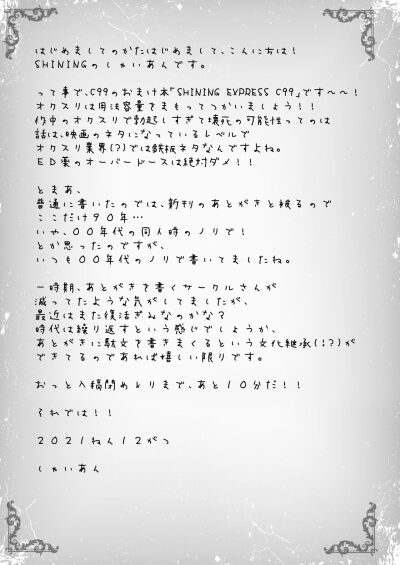 はじめましてのかたはじめまして、こんにちは！
SHININGのしゃいあんです。
って事で、C99のおまけ本「SHINING EXPRESS C99」です～～！
オクスリは用法容量をまもってつかいましょう！！
作中のオクスリで勃起しすぎて壊死の可能性ってのは
話は、映画のネタになっているレベルで
オクスリ業界(?)では鉄板ネタなんですよね。
ED薬のオーバードースは絶対ダメ！！
とまあ、
普通に書いたのでは、新刊のあとがきと被るので
ここだけ９０年…
いや、００年代の同人時のノリで！
とか思ったのですが、
いつも００年代のノリで書いてましたね。
一時期、あとがきを書くサークルさんが
減ってたような気がしてましたが、
最近はまた復活ぎみなのかな？
時代は繰り返すという感じでしょうか、
あとがきに駄文を書きまくるという文化継承(!?)が
できてるのであれば嬉しい限りです。
おっと入稿閉め切りまで、あと１０分だ！！
それでは！！
２０２１ねん１２がつ
しゃいあん